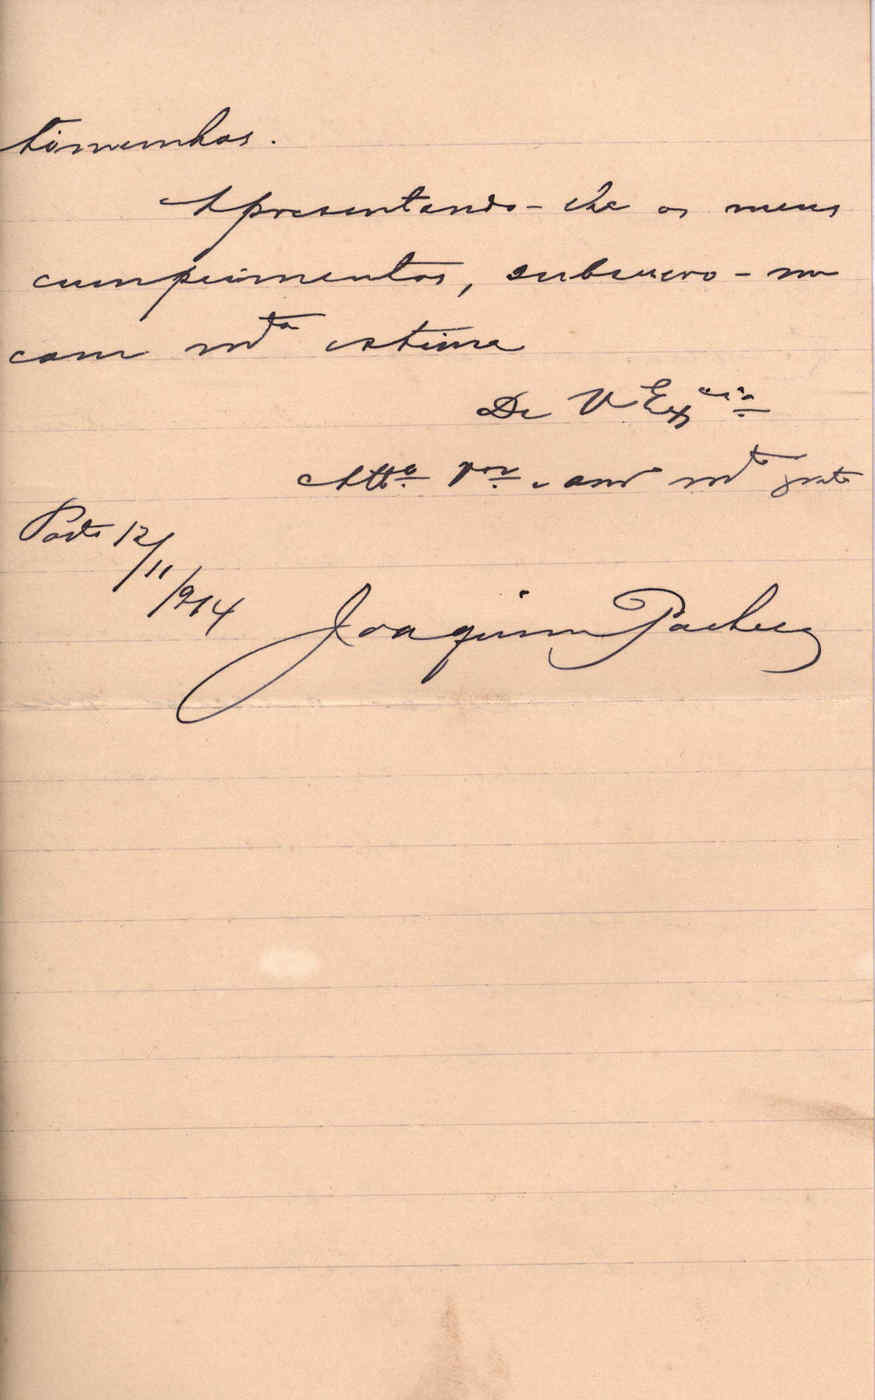 timunhas.
Apresentando-lhe os meus
cumprimentos, subscrevo-me
com mta estima
De V Excia
Atto Vor e amo mto grato
Porto 12/11/914
Joaquim Pacheco